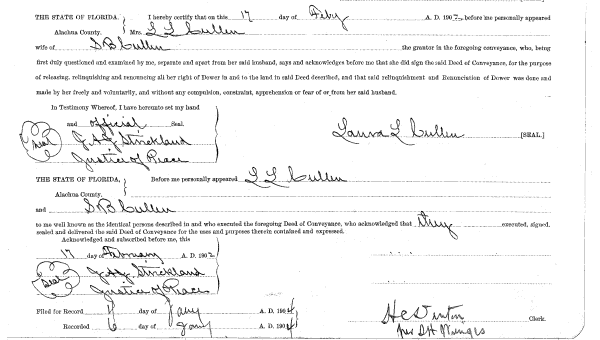 THE STATE OF FLORIDA. } I hereby certify that on this 17 day of Feby A. D. 1902, before me personally appeared
Alachua County. } Mrs. L L Cullen
wife of S B Cullen the grantor in the foregoing conveyance, who, being
first duly questioned and examined by me, separate and apart from her said husband, says and acknowledges before me that she did sign the said Deed of Conveyance, for the purpose
of releasing, relinquishing and renouncing all her right of Dower in and to the land in said Deed described, and that said relinquishment and Renunciation of Dower was done and
made by her freely and voluntarily, and without any compulsion, constraint, apprehension or fear of or from her said husband.
In Testimony Whereof, I have hereunto set my hand
and official Seal.
Seal Strickland
Justice of Peace
Laura L Cullen [SEAL.]
THE STATE OF FLORIDA. } Before me personally appeared L L Cullen
Alachua County. }
and S B Cullen
to me well known as the identical persons described in and who executed the foregoing Deed of Conveyance, who acknowledged that they executed, signed,
sealed and delivered the said Deed of Conveyance for the uses and purposes therein contained and expressed.
Acknowledged and subscribed before me, this
17 day of February A. D. 1902
Seal Strickland
Justice of Peace
Filed for Record day of Jany A. D. 1904
Recorded 6 day of Jany A. D. 1904
Clerk.
per